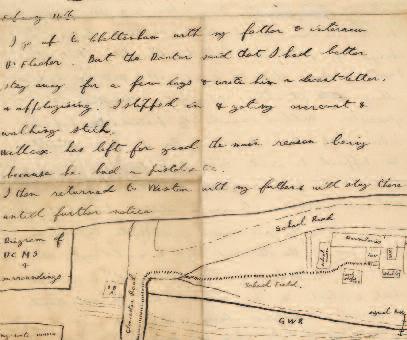 I go up to Cheltenham with my father & interview
Dr Flecker. But the Doctor said that I had better
stay away for a few days & write him a decent letter.
& appologising. I slipped in & got my overcoat &
walking stick.
has left for good the main reason being
because he had a pistol etc.
I then returned to Weston with my father & will stay there
untill further notice
Diagram of
D C M S
&
surroundings
School Road
School Field.
Gloucester Road
GWR